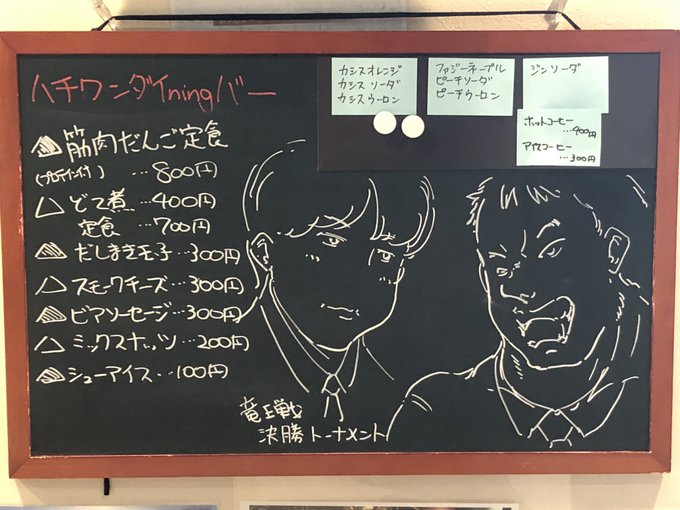 ハチワンダイningバー
筋肉だんご定食
(プロテイン付) …800円
どて煮…400円
定食…700円
だしまき玉子…300円
スモークチーズ…300円
ビアソーセージ…300円
ミックスナッツ…200円
シューアイス…100円
カシスオレンジ
カシスソーダ
カシスウーロン
ファジーネーブル
ピーチソーダ
ピーチウーロン
ジンソーダ
ホットコーヒー
…400円
アイスコーヒー
…300円
竜王戦
決勝トーナメント